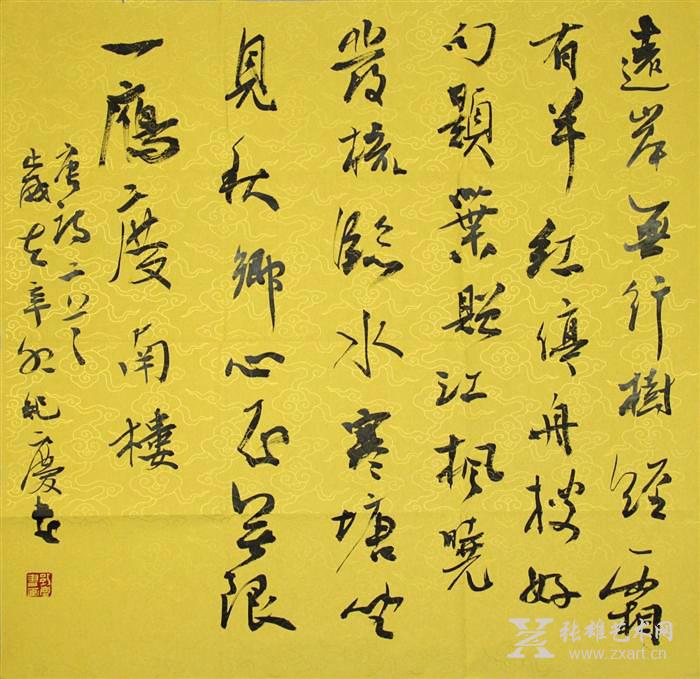 遠岸無行樹經霜
有半紅停舟搜好
句題葉贈江楓曉
發梳臨水寒塘坐
見秋鄉心正無限
一鴈度南樓
唐詩二首
歲在辛卯 慶書
张雄艺术网
www.zxart.cn